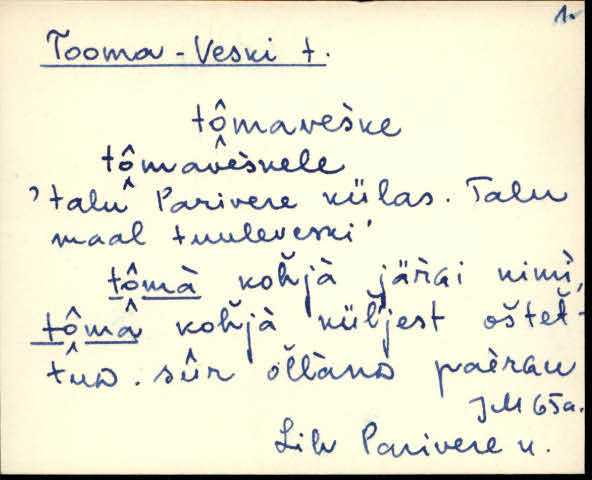 1.
Tooma-Veski t.
tômaveske
tômavèskele
'talu Parivere külas. Talu
maal tuuleveski'
tômà kohjà järài nimì,
tômâ kohjà küljest oštet-
tûD. sûr
JM 65a.
Lih Parivere k.